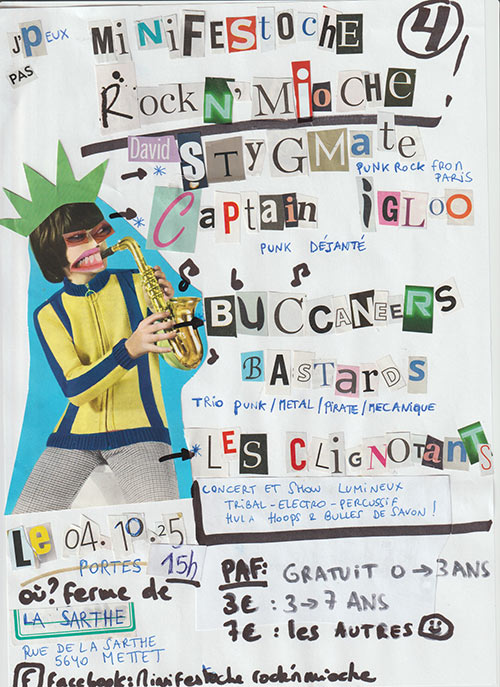 J'Peux
Pas
MiNiFestoche 4!
Rock N' Mioche
David Stygmate
Punk Rock from
Paris
* Captain iGLOO
Punk déjanté
BUCCANEERS
BASTARDS
Trio punk/metal/pirate/mecanique
* LES CLIGNOTANTS
Concert et show lumineux
Tribal-electro-percussif
Hula hoops & bulles de savon !
Le 04.10.25
Portes 15h
où? Ferme de
La Sarthe
Rue de la Sarthe
5640 Mettet
PAF: Gratuit 0→3 ans
3€ : 3→7 ans
7€ : les autres
f Facebook: Minifestoche rock'n mioche